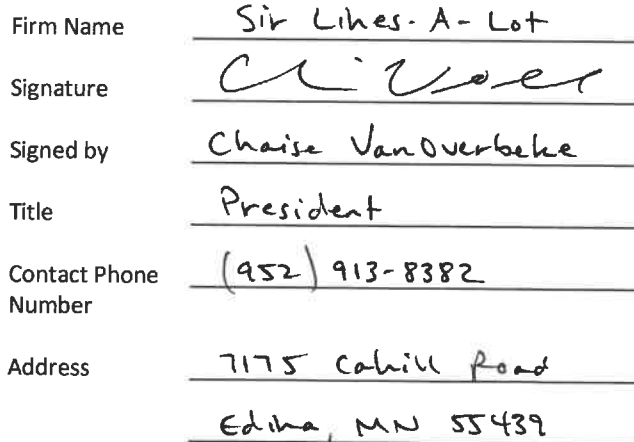 Firm Name Sir Lines-A-Lot
Signature
Signed by Chaise VanOverbeke
Title President
Contact Phone (952) 913-8382
Number
Address 7175 Cahill Road
Edina, MN 55439